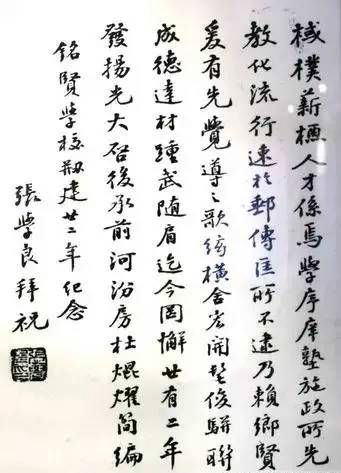 棫樸薪槱人才係焉學序庠塾施政所先
教化流行速於郵傳匡所不逮乃賴鄉賢
爰有先覺導之歌絃橫舍宏開髦俊駢聯
成德達材踵武隨肩迄今罔懈廿有二年
發揚光大启後承前河汾房杜焜燿簡編
銘賢學校剏建廿二年紀念
張學良拜祝